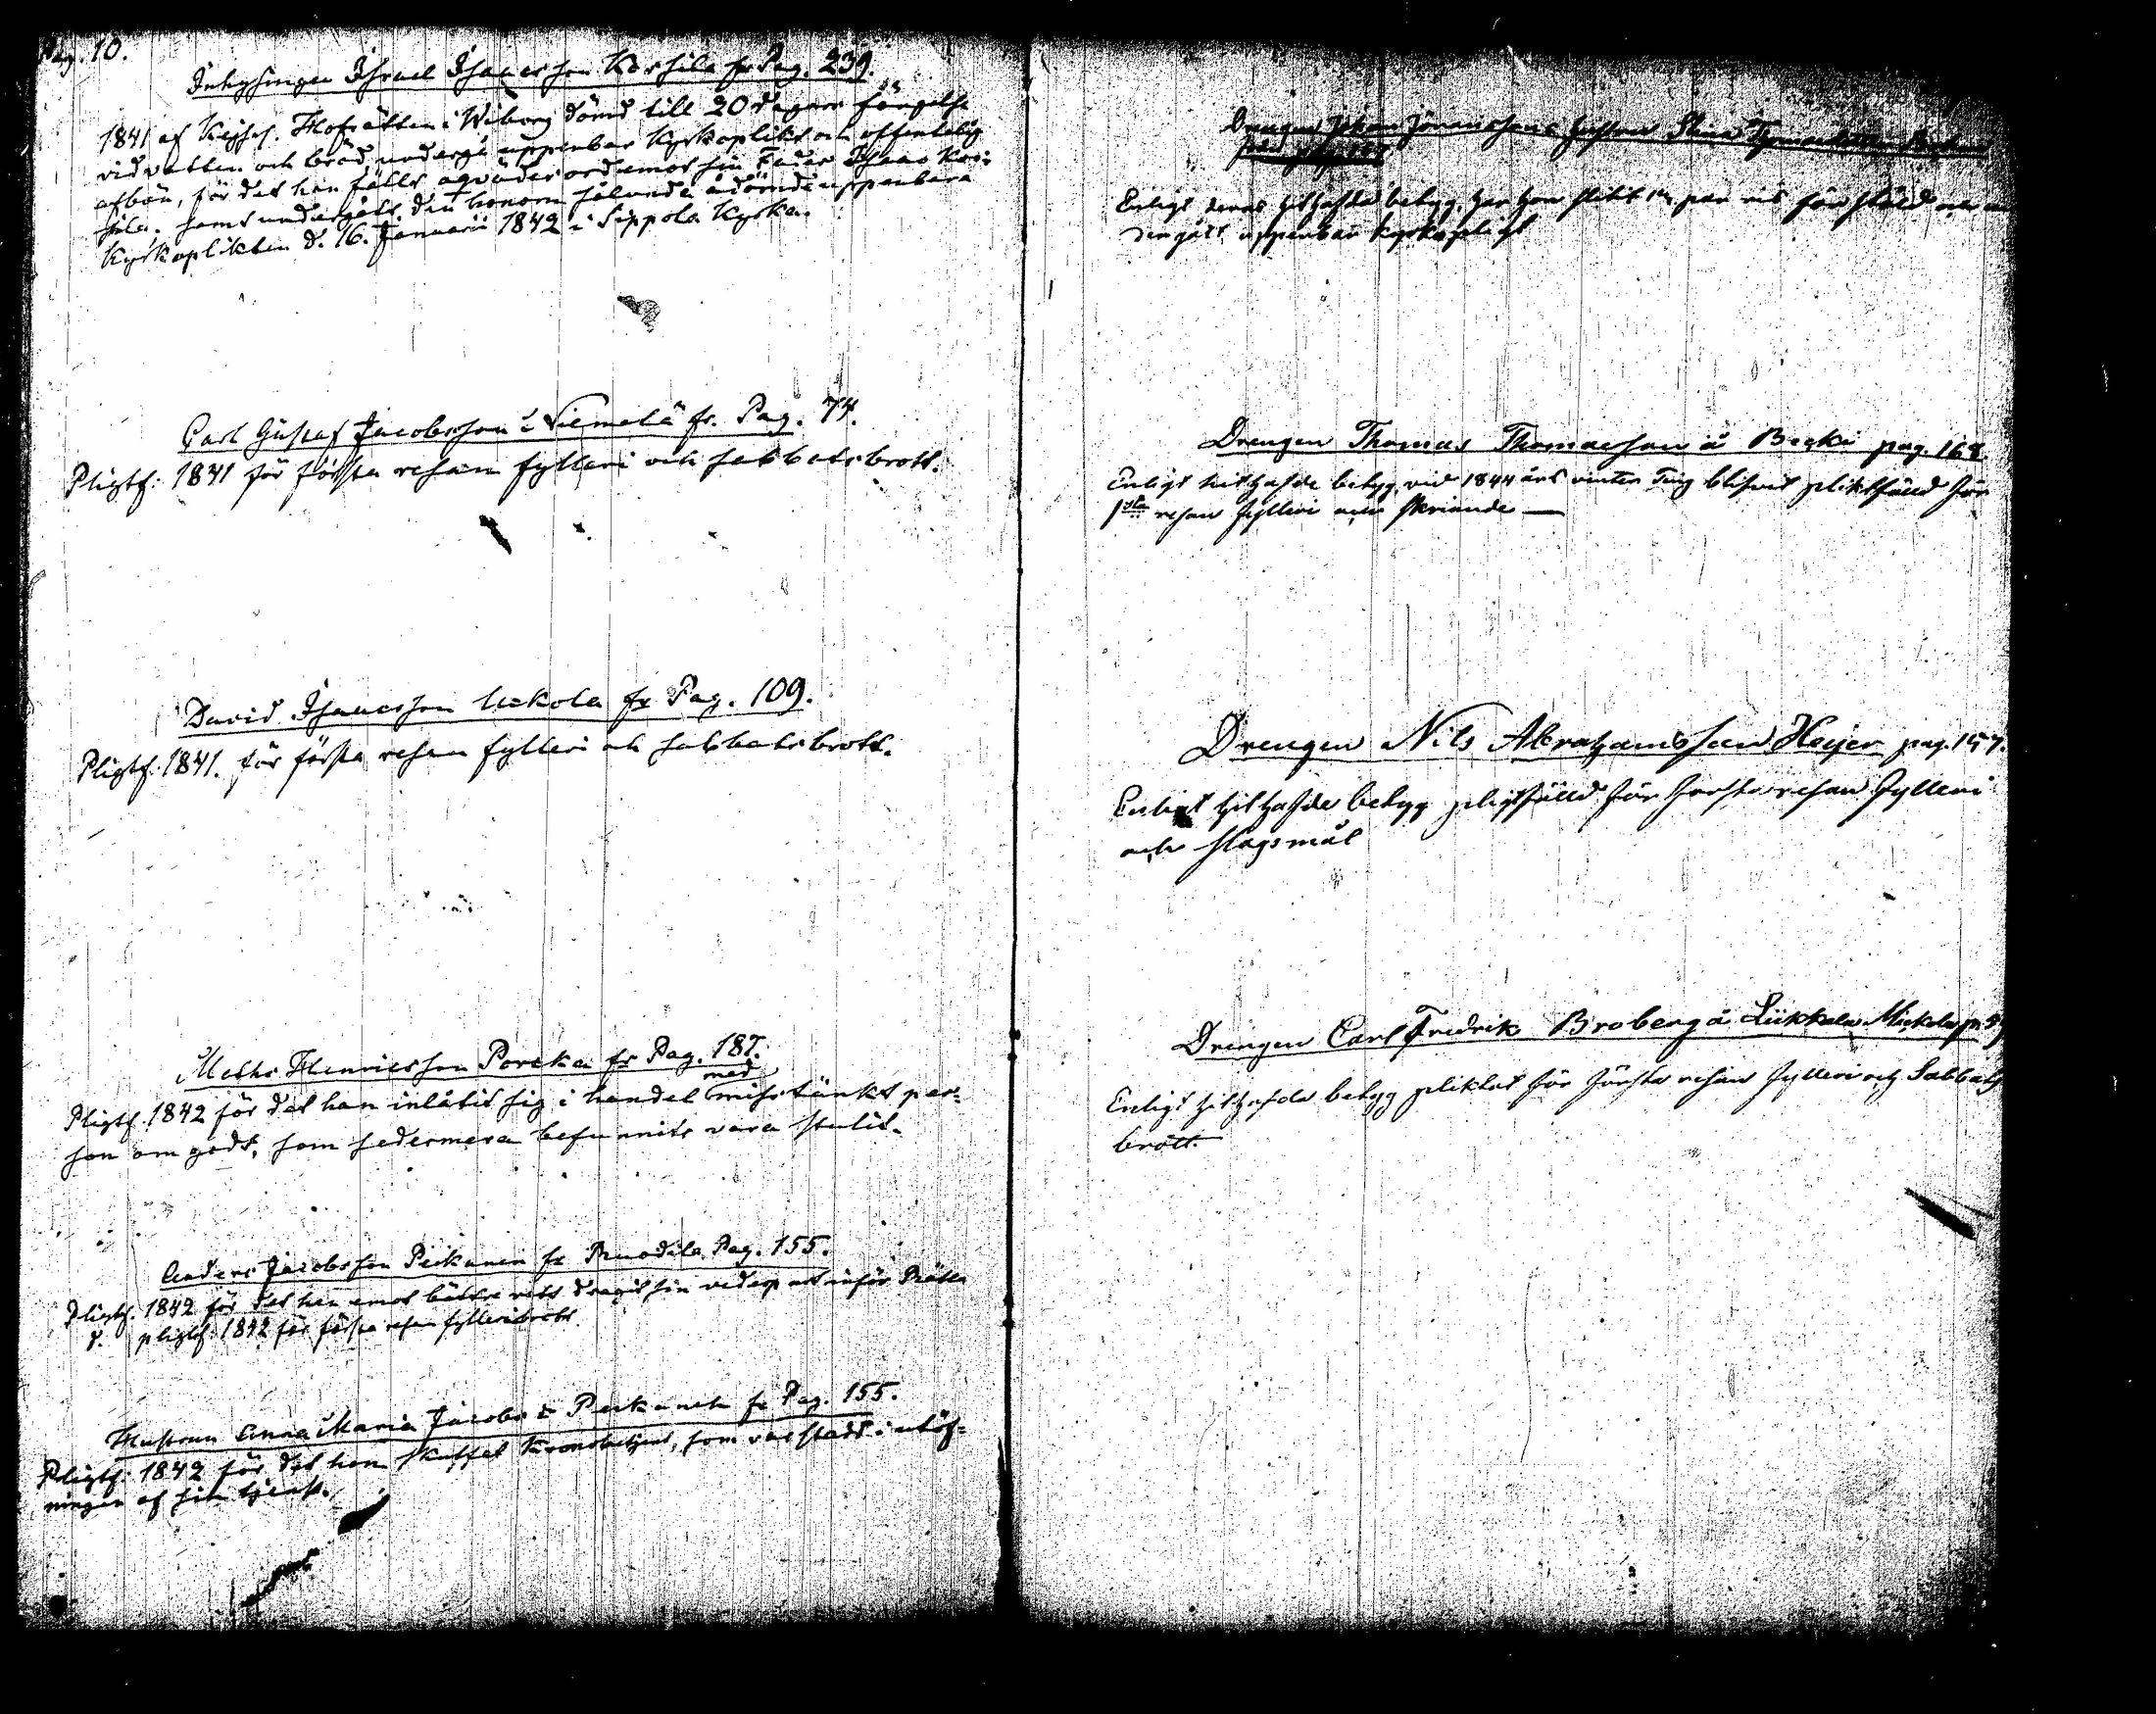 Pag. 10.
Inhysingen Israel Isaacsson Korsila fr Pag. 239.
1841 af Kejserl. Hofrätten i Wiborg dömd till 20 dagars fängelse
vid vatten och bröd undergå uppenbar Kyrkoplikt och offentelig
afbön, för det han fällt oqvädes ord emot sin Fader Isaac Kor-
sila. samt undergått den honom sålunde ådömde uppenbara
Kyrkoplikten d. 16. Januarii 1842 i Sippola Kyrka.
Carl Gustaf Jacobsson i Niemelä fr. Pag. 74.
Pligtf. 1841 för första resan fylleri och sabbatsbrott.
David Isaacsson Uckola fr Pag. 109.
Pligtf. 1841. för första resan fylleri och sabbatsbrott.
Matts Henricsson Porcka fr Pag. 187.
Pligtf. 1842 för det han inlåtit sig i handel med misstänkt per-
son om gods, som sedermera befunnits vara stulit.
Anders Jacobsson Peckanen fr Ruodila Pag. 155.
Pligtf. 1842 för det han emot bättre vett dragit sin vederpart inför Rätta
d. pligtf. 1842 för första resan fylleribrott.
Hustrun Anna Maria Jacobs dr Peckanen fr Pag. 155.
Pligtf. 1842 för det hon skuffat Kronobetjent, som var stadd i utöf-
ningen af sin tjenst.
Drengen Johan hustru Stina
från pag
Enligt deras hithafda betyg, har hon slitit 14 par ris för stöld och un
dergått uppenbar kyrkopligt
Drengen Thomas Thomasson å Becki pag. 168.
Enligt hithafde betyg, vid 1844 års vinter Ting blifvit pliktfälld för
1sta resan fylleri och skriande
Drengen Nils Abrahamsson Heijer pag. 157.
Enligt hithafde betyg pligtfälld för första resan fylleri
och slagsmål
Drengen Carl Fredrik Broberg å Liikkala Mickela p.
Enligt hithafda betyg pliktat för första resan fylleri och Sabbats
brott.